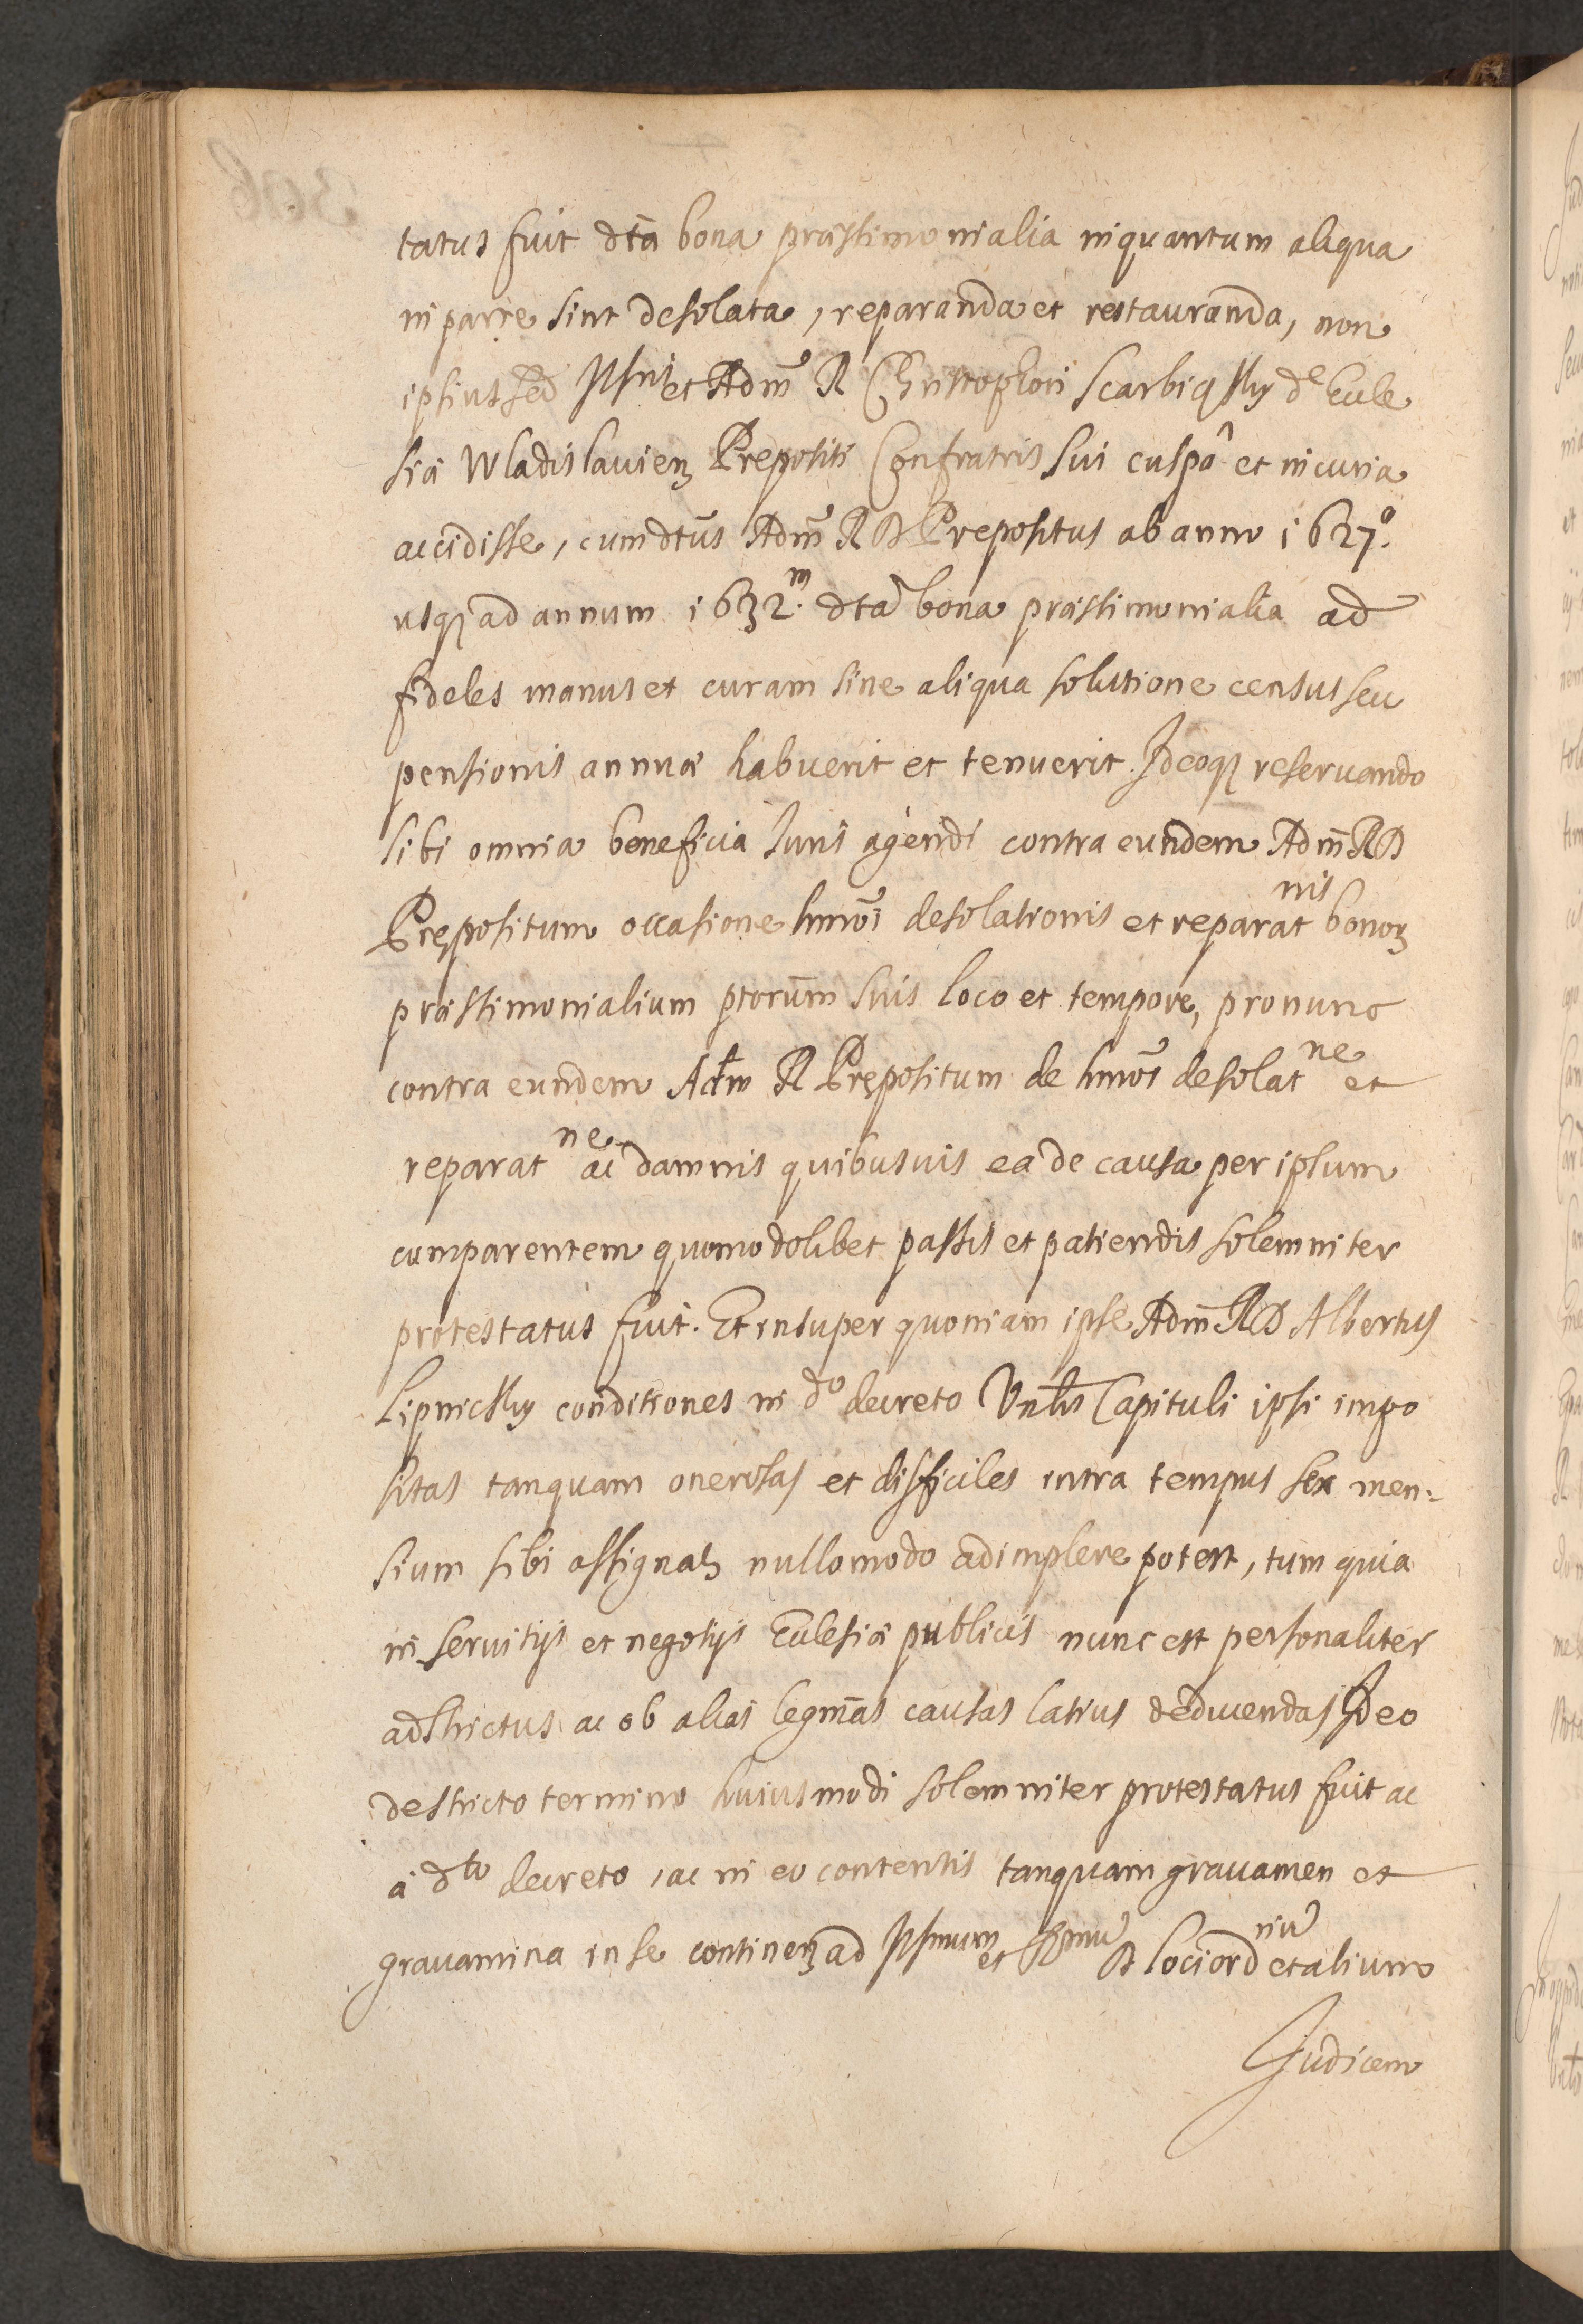 tatus fuit dta bona præstimonialia inquantum aliqua
in parte sint desolata, reparanda et restauranda, non
ipsius sed et Adm R Christophori Scarbięsky de Eccle
siæ Wladislavien Prepositi Confratris sui culpâ et incuria
accidisse, cum dtus Adm R D Prepositus ab anno 1627º.
usq ad annum 1632.m dta bona præstimonialia ad
fideles manus et curam sine aliqua solutione census seu
pensionis annuæ habuerit et tenuerit. Ideoq reservando
sibi omnia beneficia Iuris agendi contra eundem Adm R D
Prępositum occasione hmōi desolationis et reparatnis bonor
præstimonialium ptorum suis loco et tempore, pro nunc
contra eundem Adm R Prępositum de hmōi desolatne et
reparatne ac damnis quibusvis ea de causa per ipsum
comparentem quomodolibet passis et patiendis solemniter
protestatus fuit. Et insuper quoniam ipse Adm R D Albertus
Lipnicky conditiones in do decreto Vnlis Capituli ipsi impo
sitas tanquam onerosas et difficiles intra tempus sex men:
sium sibi assignat nullomodo adimplere potest, tum quia
in servitijs et negotijs Ecclesiæ publicis nunc est personaliter
adstrictus ac ob alias legmas causas latius deducendas Ideo
de stricto termino huiusmodi solemniter protestatus fuit ac
à dto decreto, ac in eo contentis tanquam gravamen et
gravamina in se continen ad et D loci ordnium et alium
Iudicem